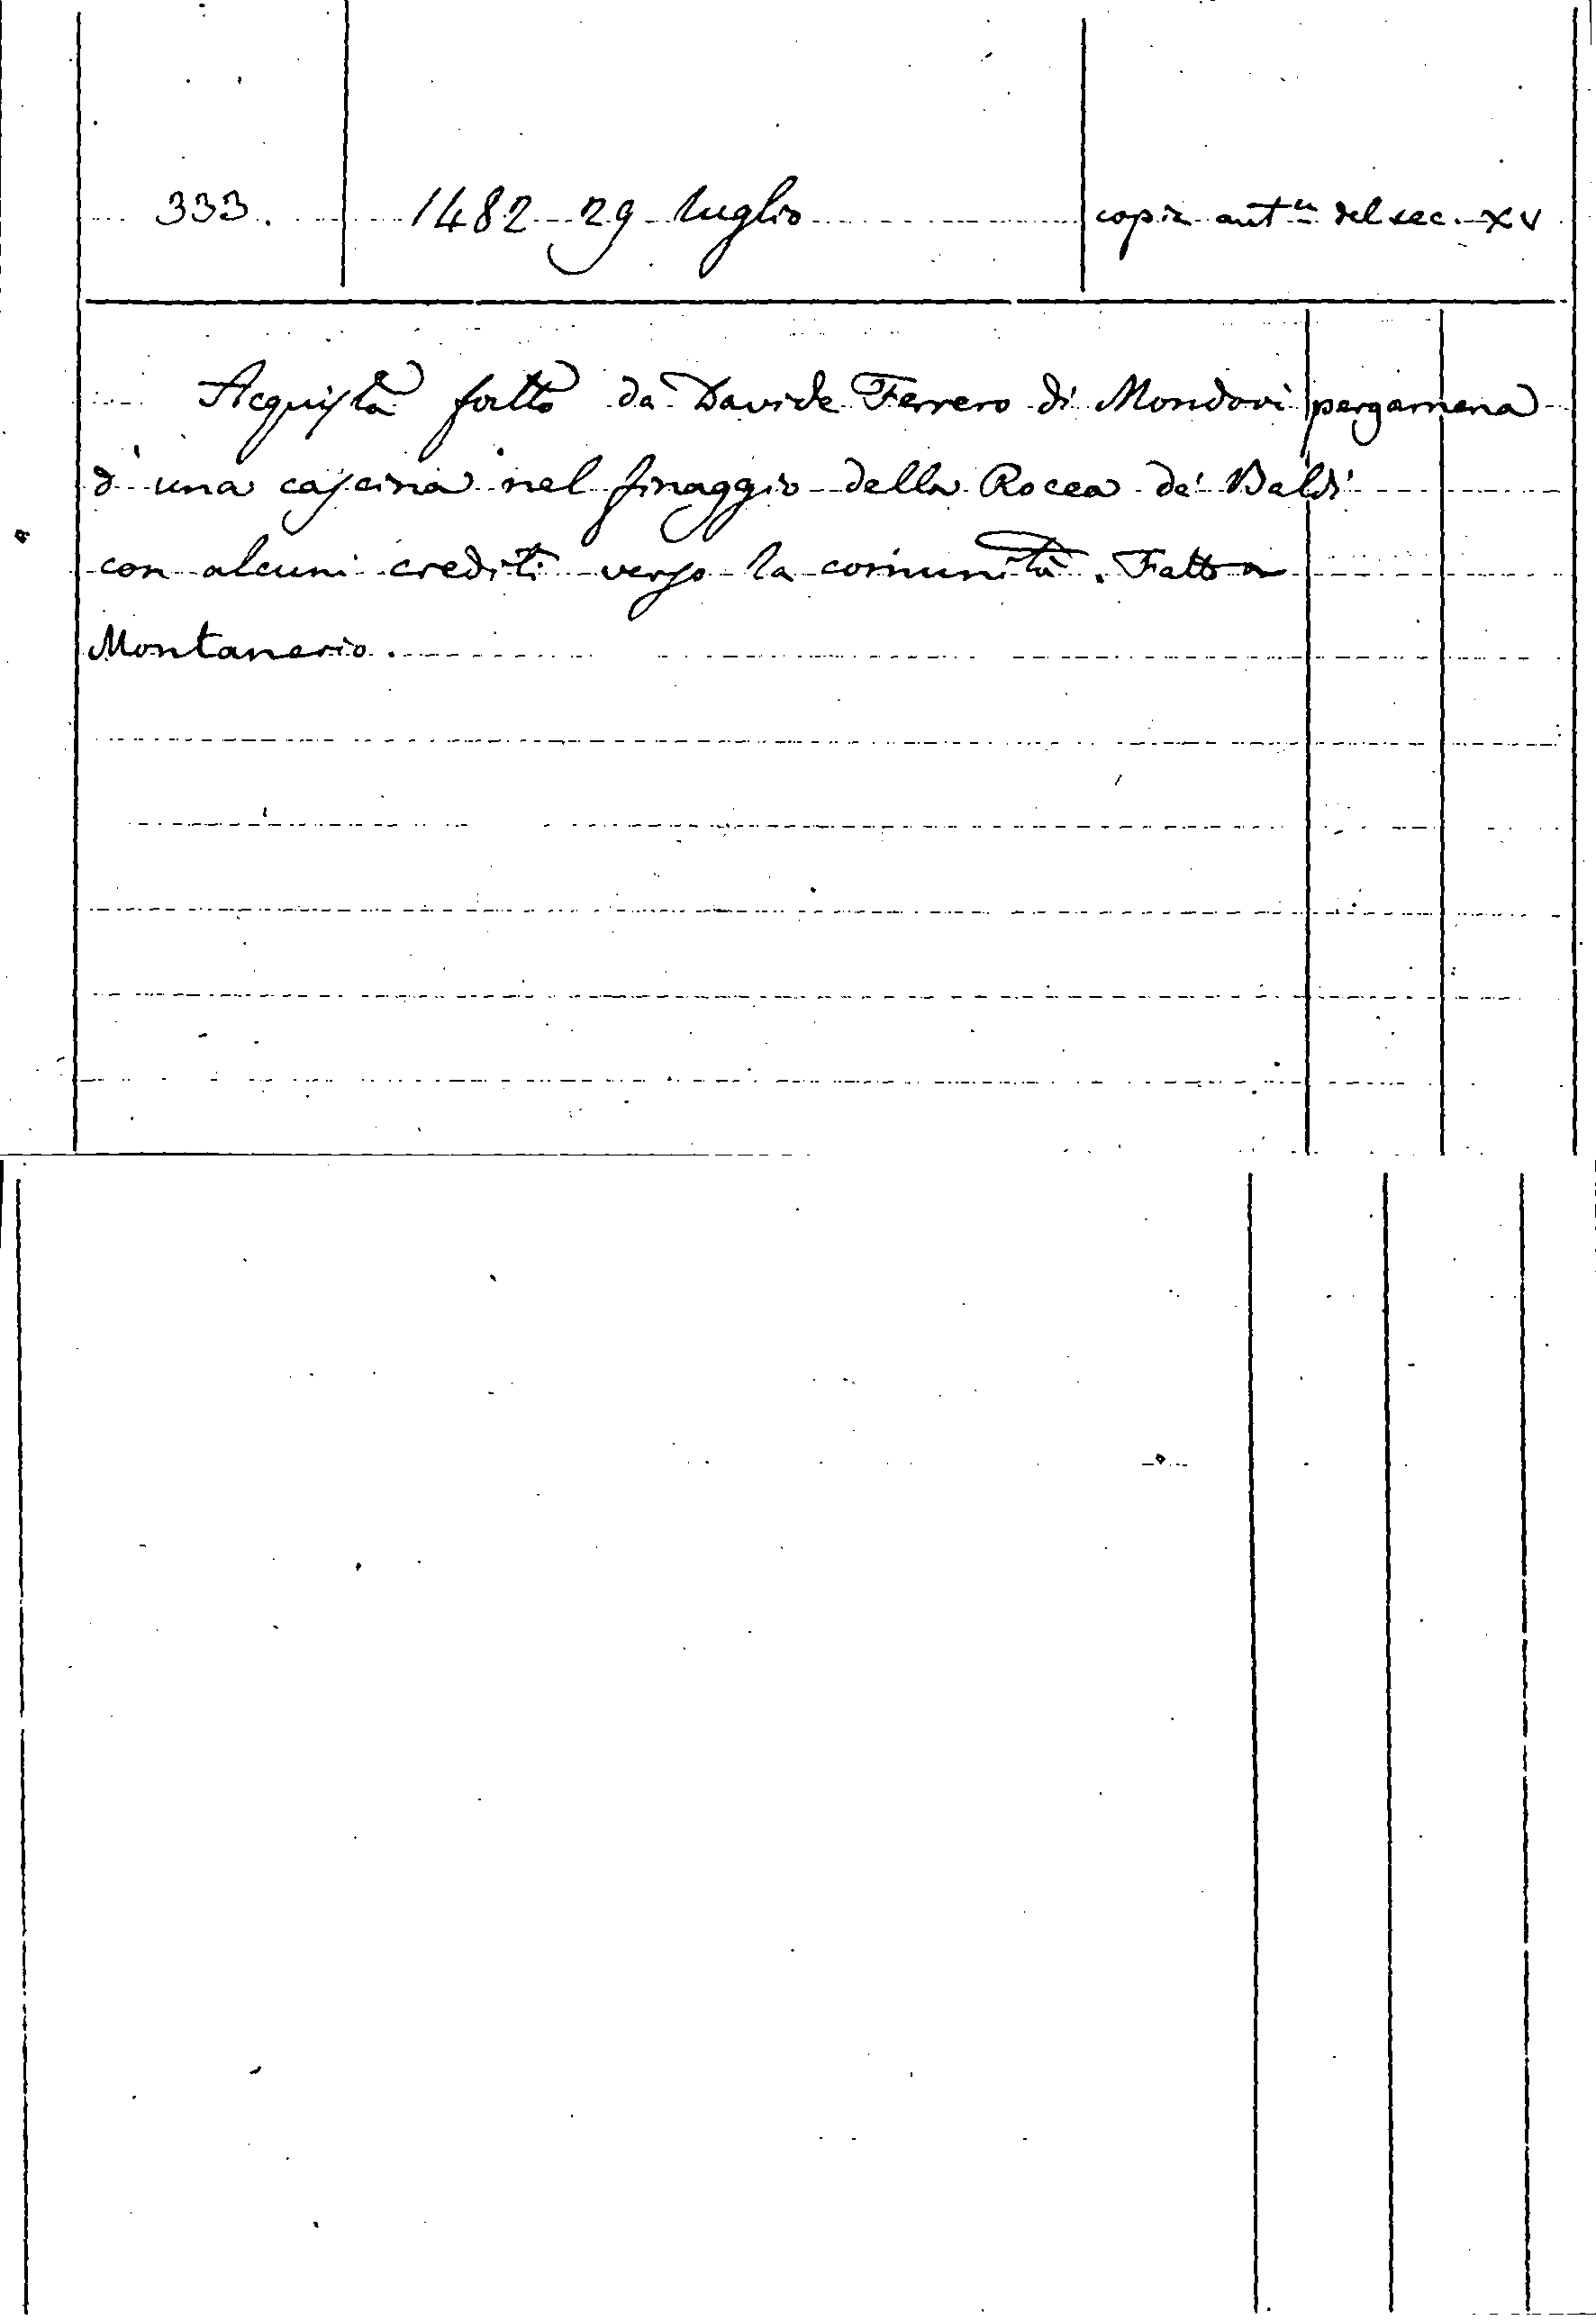 333. 1482 29 luglio copia aut.ca del sec. XV
Acquisto fatto da Davide Ferrero di Mondovì pergamena
d'una cascina nel finaggio della Rocca de' Baldi
con alcuni crediti verso la comunità. Fatto a
Montanerio.